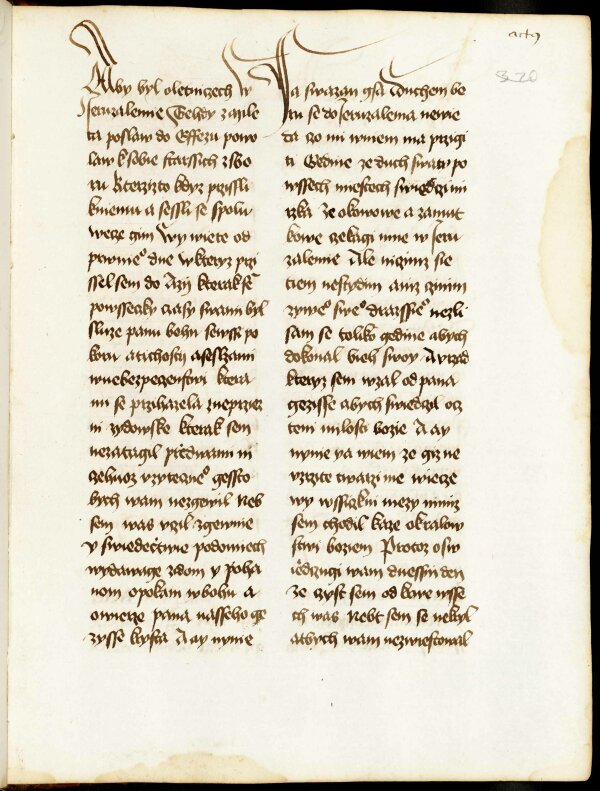 actꝰ
320
Aby byl oletniczech w
Jeruzalemie Tehdy z mile
ta poslaw do Effezu powo
law k sobie starssich zbo
ru Kterzizto kdyz przissli
kniemu a sessli se spolu
wecze gim Wy wiete od
prwnieº dne wkteryz przi
ssel sem do Azij kterak sē
powssecky czasy swami byl
sluze panu bohu sewssi po
koru atichosti aseslzami
wnebezpeczenstwi ktera
mi se przihazela zneprziez
ni zydowske kterak sem
nezatagil przedwami ni
czehoz vzyteczneº gessto
bych wam nezgewil Neb
sem was vczil zgewnie
y swiedecztwie podomiech
wydawage zdom y poha
nom opokani wbohu a
owierze pana nasseho ge
zysse krysta A ay nynie
Ja swazan gsa Duchem be
ru se do Jeruzalema newie
da czo mi wniem ma przigi
ti Gedine ze duch swaty po
wssech miestech swiedczi mi
rzka Ze okowowe a zamut
kowe czekagi mne w Jeru
zalemie Ale niczimz sie
tiem nestydim aniz czinim
zyweº sweº drazssieº nezli
sam se toliko gedine abych
dokonal bieh swoy A vrzad
kteryz sem wzal od pana
gezisse abych swiedczil czt
teni milosti bozie A ay
nynie ya wiem ze giz ne
vzrzite twarzi me wiecze
wy wssiczkni mezy nimiz
sem chodil kaze okralow
stwi boziem Protoz osw
iedczugi wam dnessni den
Ze czyst sem od krwe wsse
ch was Nebt sem se nekryl
abych wam nezwiestowal